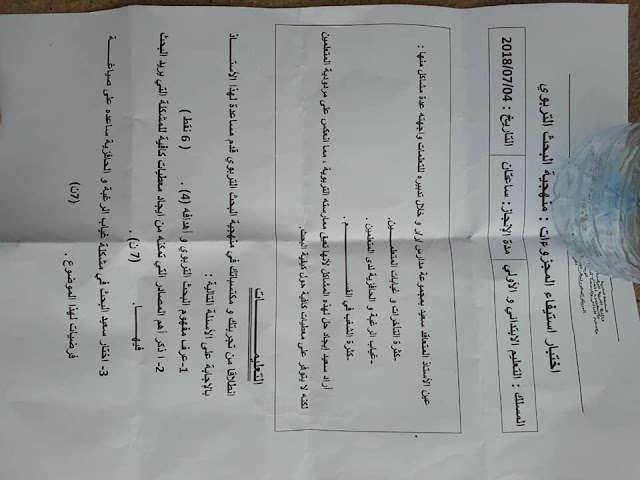 اختبار استيفاء المجزوءات : منهجية البحث التربوي
المسلك : التعليم الابتدائي و الأولي
مدة الإنجاز: ساعتان
التاريخ : 2018/07/04
عين الأستاذ المتعاقد سعيد بمجموعة مدارس /و /ر خلال تدبيره للتعلمات واجهته عدة مشاكل منها :
-كثرة التأخرات و غيابات المتعلميـــــن.
-غياب الرغبة و الحافزية لدى المتعلمين.
-كثرة الشغب في القـــــــــــم .
أراد سعيد إيجاد حل لهذه المشاكل لأنها تعيق ممارسته التربوية ،مما انعكس على مردودية المتعلمين
لكنه لا يتوفر على معطيات كافية حول كيفية البحث.
التعليمــــــــات
انطلاقا من تجربتك و مكتسباتك في منهجية البحث التربوي قدم مساعدة لهذا الأستــــاذ
بالإجابة على الأسئلة التالية :
1-عرف مفهوم البحث التربوي و أهدافه (4) . ( 6 نقط )
2- اذكر أهم المصادر التي تمكنه من إيجاد معطيات كافية للمشكلة التي يريد البحث
فيهــــــا. (7 ن) .
3- اختار سعيد البحث في مشكلة غياب الرغبة و الحافزية ساعده على صياغـــــة
فرضيات لهذا الموضوع . (7ن)